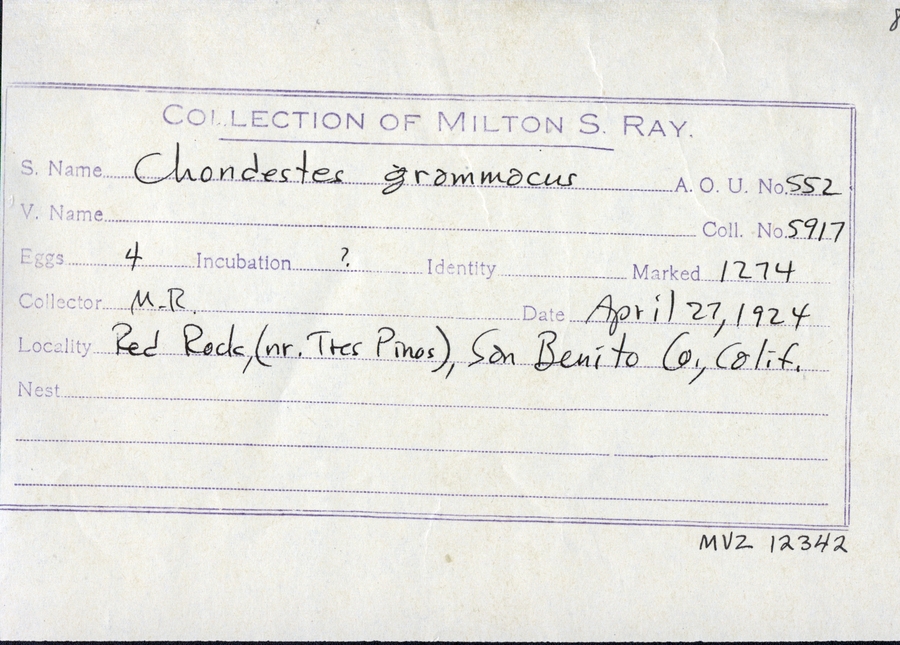 8
COLLECTION OF MILTON S. RAY.
S. Name Chondestes grammacus A. O. U. No. 552
V. Name Coll. No. 5917
Eggs 4 Incubation ? Identity Marked 1274
Collector M.R. Date April 27, 1924
Locality Red Rock, (nr. Tres Pinos), San Benito Co., Calif.
Nest
MVZ 12342